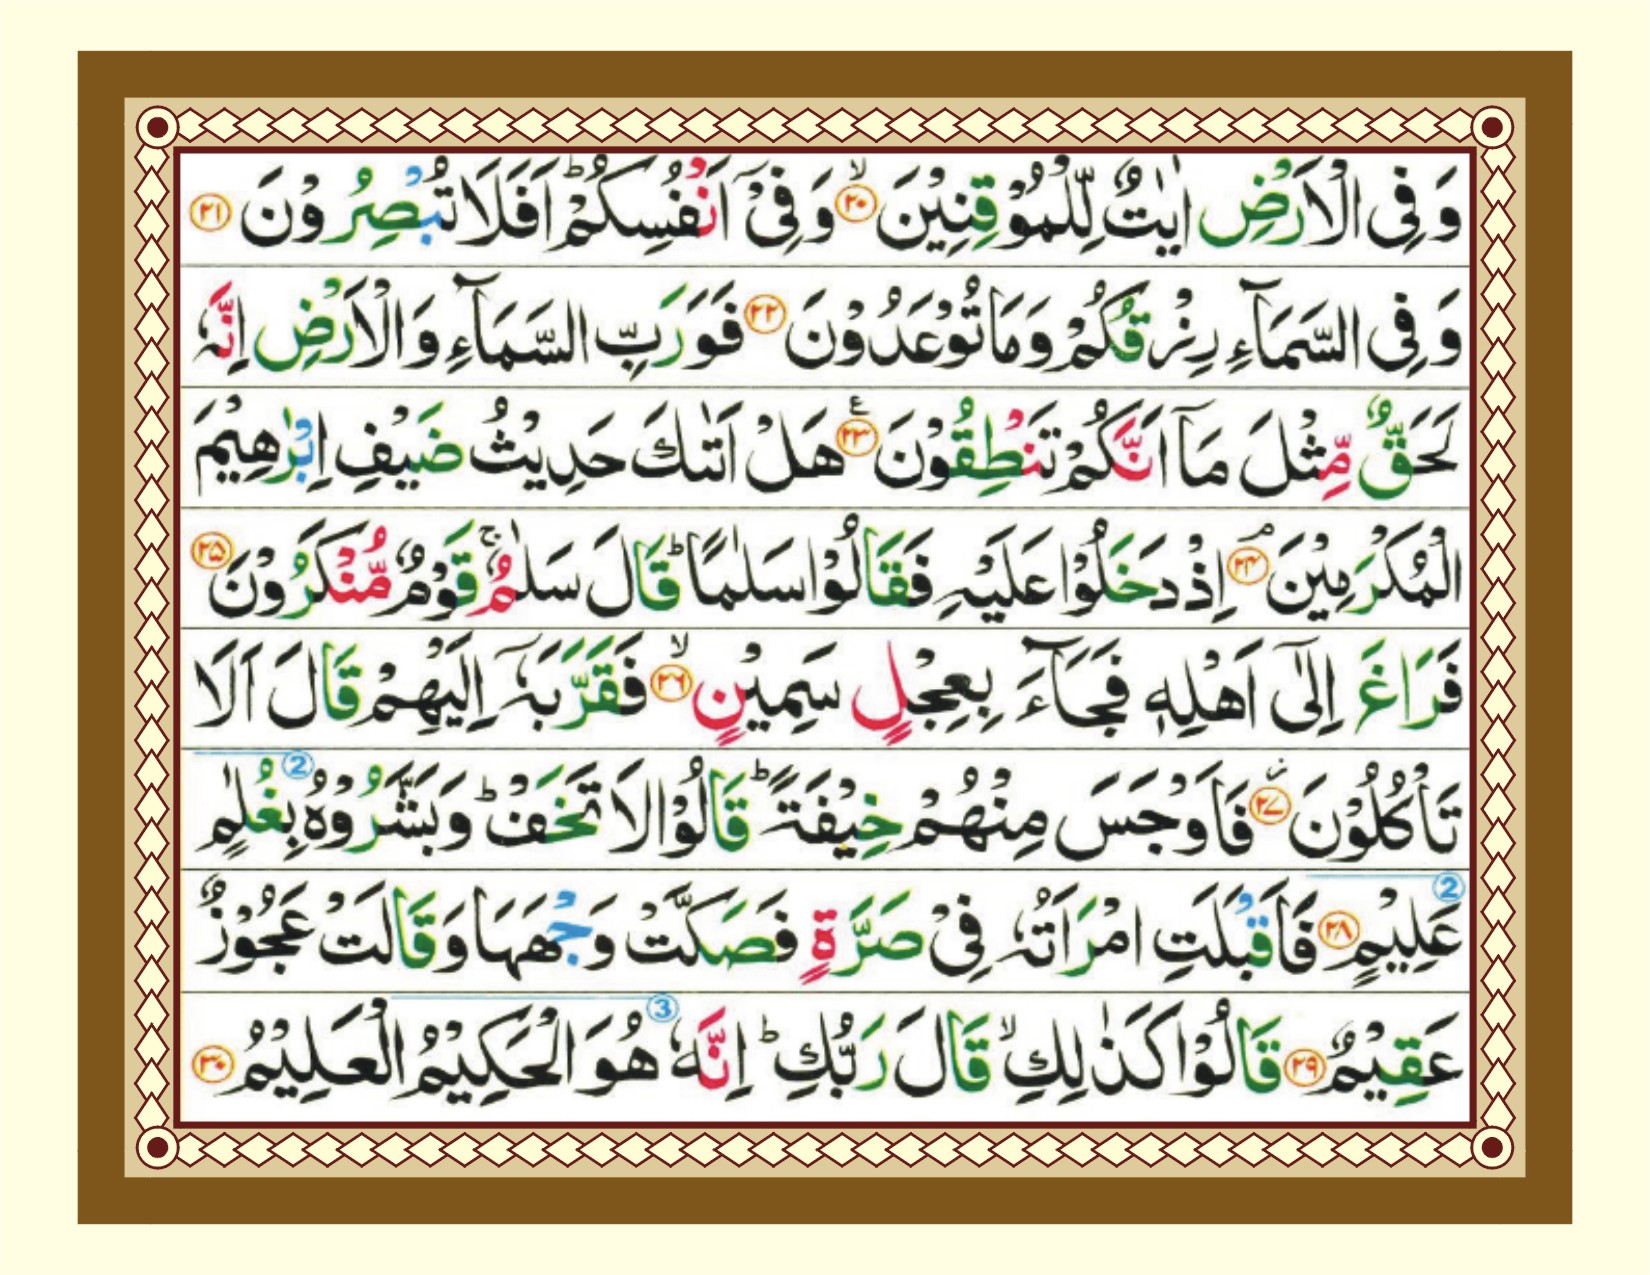 وَ فِی الْاَرْضِ اٰیٰتٌ لِّلْمُوْقِنِیْنَ ۙ﴿۲۰﴾ وَ فِیْۤ اَنْفُسِكُمْ ؕ اَفَلَا تُبْصِرُوْنَ ﴿۲۱﴾
وَ فِی السَّمَآءِ رِزْقُكُمْ وَ مَا تُوْعَدُوْنَ ﴿۲۲﴾ فَوَ رَبِّ السَّمَآءِ وَ الْاَرْضِ اِنَّهٗ
لَحَقٌّ مِّثْلَ مَاۤ اَنَّكُمْ تَنْطِقُوْنَ ﴿۲۳﴾ۧ هَلْ اَتٰىكَ حَدِیْثُ ضَیْفِ اِبْرٰهِیْمَ
الْمُكْرَمِیْنَ ۘ﴿۲۴﴾ اِذْ دَخَلُوْا عَلَیْهِ فَقَالُوْا سَلٰمًا ؕ قَالَ سَلٰمٌ ۚ قَوْمٌ مُّنْكَرُوْنَ ﴿۲۵﴾
فَرَاغَ اِلٰۤی اَهْلِهٖ فَجَآءَ بِعِجْلٍ سَمِیْنٍ ۙ﴿۲۶﴾ فَقَرَّبَهٗۤ اِلَیْهِمْ قَالَ اَلَا
تَاْكُلُوْنَ ؗ﴿۲۷﴾ فَاَوْجَسَ مِنْهُمْ خِیْفَةً ؕ قَالُوْا لَا تَخَفْ ؕ وَ بَشَّرُوْهُ بِغُلٰمٍ ②
عَلِیْمٍ ② ﴿۲۸﴾ فَاَقْبَلَتِ امْرَاَتُهٗ فِیْ صَرَّةٍ فَصَكَّتْ وَجْهَهَا وَ قَالَتْ عَجُوْزٌ
عَقِیْمٌ ﴿۲۹﴾ قَالُوْا كَذٰلِكِ ۙ قَالَ رَبُّكِ ؕ اِنَّهٗ ③ هُوَ الْحَكِیْمُ الْعَلِیْمُ ﴿۳۰﴾